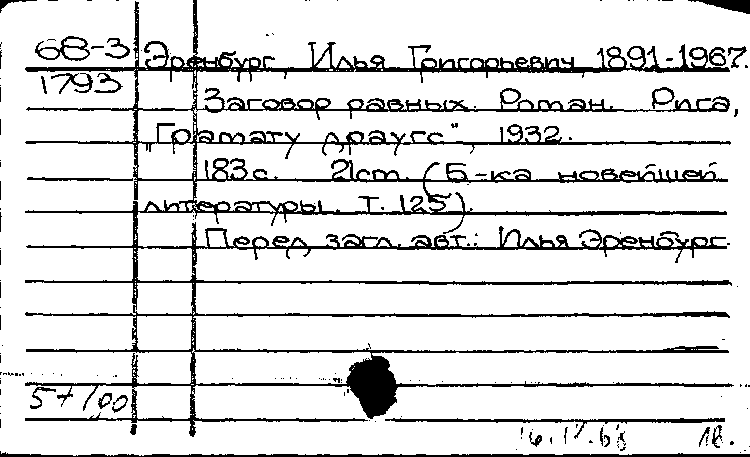 68-3 Эренбург, Илья Григорьевич, 1891-1967.
1793
Заговор равных. Роман. Рига,
„Грамату драугс", 1932.
183 с. 21 cm. (Б-ка новейшей
литературы. Т. 125).
Перед загл. авт.: Илья Эренбург.
57/00
18.